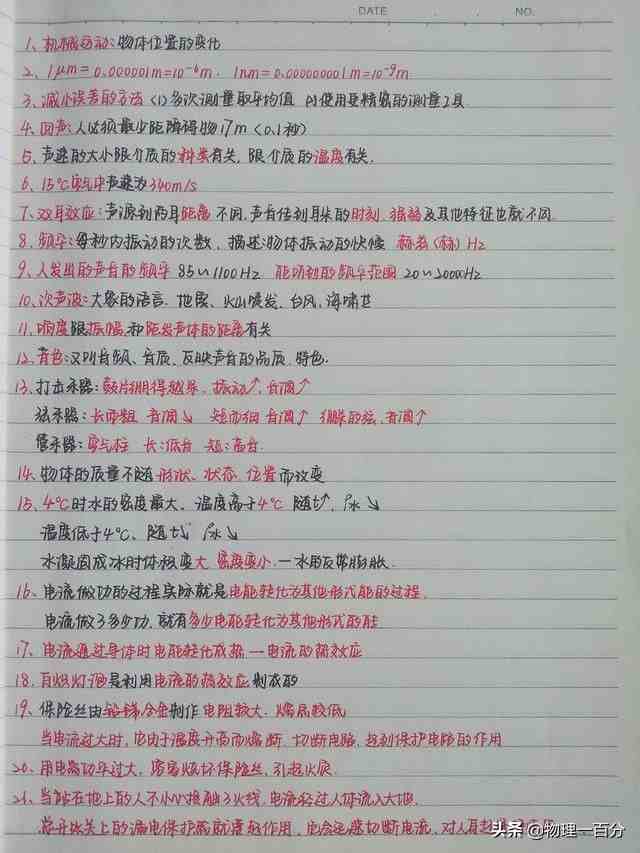 DATE . . NO.
1、机械运动：物体位置的变化
2、1μm=0.000001m=10⁻⁶m. 1nm=0.000000001m=10⁻⁹m
3、减小误差的方法 (1)多次测量取平均值 (2)使用更精密的测量工具
4、回声：人必须最少距障碍物17m(0.1秒)
5、声速的大小跟介质的种类有关，跟介质的温度有关.
6、15℃空气中声速为340m/s
7、双耳效应：声源到两耳距离不同，声音传到耳朵的时刻、强弱及其他特征也就不同
8、频率：每秒内振动的次数，描述物体振动的快慢 赫兹(赫) Hz
9、人发出的声音的频率 85~1100Hz 能听到的频率范围 20~20000Hz
10、次声波：大象的语言、地震、火山喷发、台风、海啸等
11、响度跟振幅和距发声体的距离有关
12、音色：又叫音频、音质、反映声音的品质、特色.
13、打击乐器：鼓皮绷得越紧，振动↗，音调↗
弦乐器：长而粗 音调↘ 短而细 音调↗ 绷紧的弦，音调↗
管乐器：空气柱 长：低音 短：高音
14、物体的质量不随形状、状态、位置而改变
15、4℃时水的密度最大、温度高于4℃ 随t↑，ρ水↘
温度低于4℃、随t↓ ρ水↘
水凝固成冰时体积变大，密度变小.—水的反常膨胀.
16、电流做功的过程实际就是电能转化为其他形式能的过程.
电流做了多少功，就有多少电能转化为其他形式的能
17、电流通过导体时电能转化成热—电流的热效应
18、白炽灯泡是利用电流的热效应制成的
19、保险丝由铅锑合金制作 电阻较大、熔点较低
当电流过大时，它由于温度升高而熔断，切断电路，起到保护电路的作用
20、用电器功率过大，容易烧坏保险丝，引起火灾.
21、当站在地上的人不小心接触了火线，电流经过人体流入大地.
总开关上的漏电保护器就要起作用，它会迅速切断电流，对人身起
头条 @物理一百分